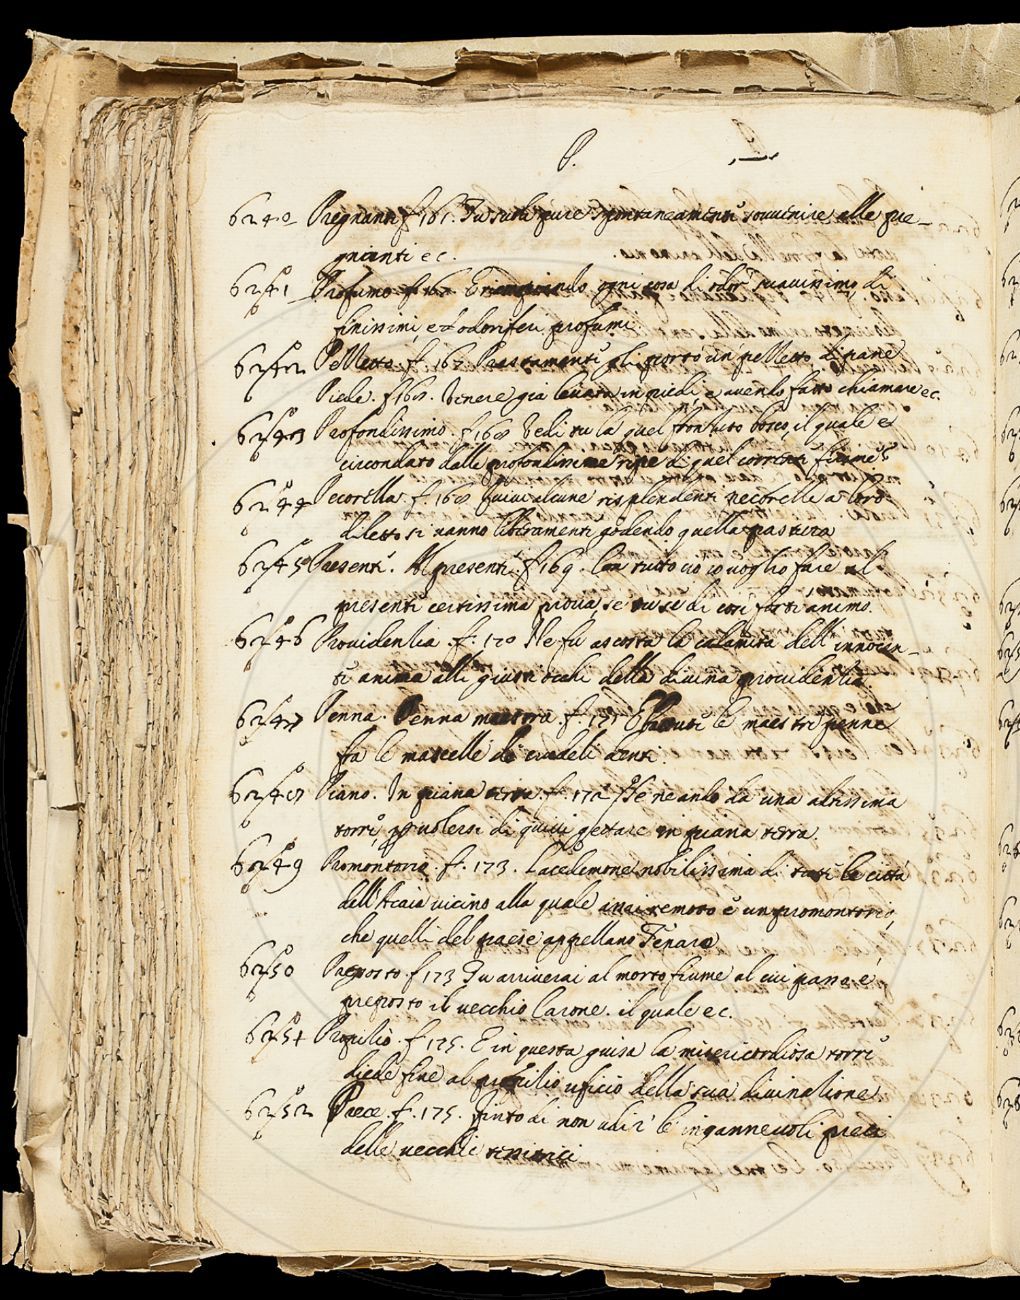 P.
6240 Pregnanti f. 161. Tu suoli pure spontaneamente souuenire alle pre-
gnanti ec.
6241 Profumo f. 162 ogni cosa di odor suauissimo di
finissimi, et odoriferi profumi
6242 Pelletto. f. 167 Prestamente gli portò un pelletto di pane
Piede. f. 168. Venere gia leuata in piedi e auendo fatto chiamare ec.
6243 Profondissimo. f. 168 Vedi tu la quel fronzuto bosco, il quale è
circondato dalle profondissime ripe di quel corrente fiume
6244 Pecorella. f. 168 quiui alcune risplendenti pecorelle a loro
diletto si uanno liberamente godendo quella pastura
6245 Presente. Al presente. f. 169. Con tutto cio io uoglio fare al
presente certissima proua, se tu se di cosi forte animo.
6246 Prouidentia. f. 170 Ne fu ascosta la calamità dell' innocen-
te anima alli giusti occhi della diuina prouidentia.
6247 Penna. Penna maestra. f. 171 le maestre penne
fra le mascelle di crudeli denti.
6248 Piano. In piana terra. f. 172 da una altissima
torre, per uolersi di quiui gettare in piana terra.
6249 Promontorio. f. 173. Lacedemone nobilissima di tutte le città
dell' Acaia uicino alla quale assai remoto è un promontorio,
che quelli del paese appellano Tenaro
6250 Preposto. f. 173 Tu arriuerai al morto fiume al cui passo è
preposto il uecchio Carone. il quale ec.
6251 Propilio. f. 175. E in questa guisa la misericordiosa torre
diede fine al propilio uficio della sua diuinatione.
6252 Prece. f. 175. finto di non udire le ingannevoli preci
delle uecchie tessitrici